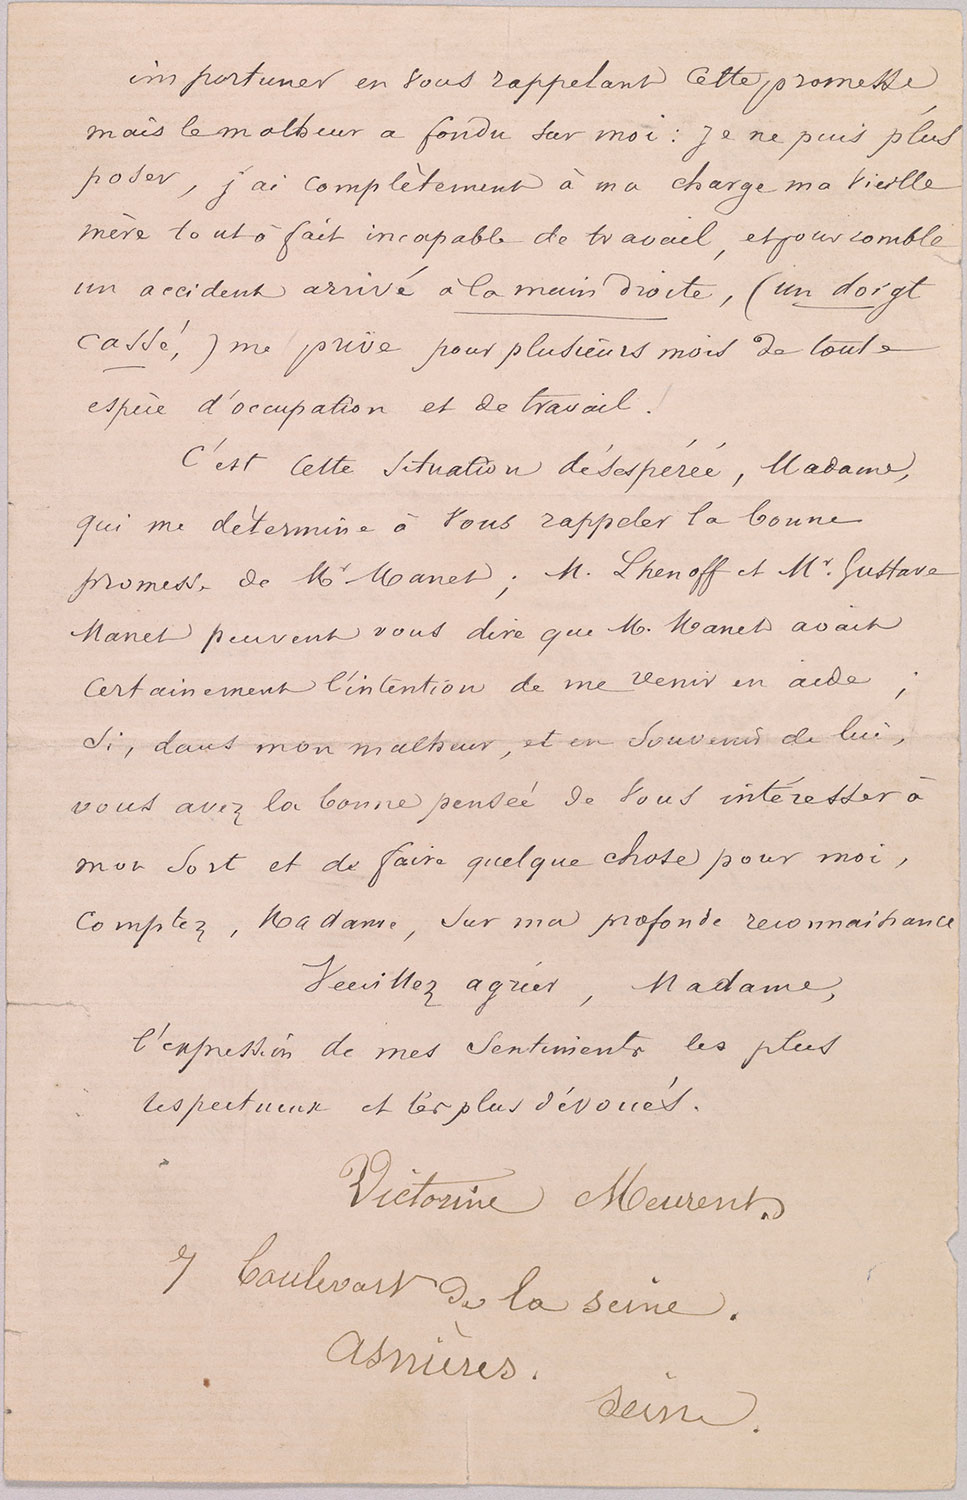 importuner en vous rappelant cette promesse
mais le malheur a fondu sur moi : je ne puis plus
poser, j'ai complètement à ma charge ma vieille
mère tout à fait incapable de travail, et pour comble
un accident arrivé à la main droite, (un doigt
cassé,) me prive pour plusieurs mois de toute
espèce d'occupation et de travail.
C'est cette situation désespérée, Madame,
qui me détermine à vous rappeler la bonne
promesse de Mr Manet ; M. Lhenoff et Mr. Gustave
Manet peuvent vous dire que M. Manet avait
certainement l'intention de me venir en aide ;
si, dans mon malheur, et en souvenir de lui,
vous avez la bonne penseé de vous intéresser à
mon sort et de faire quelque chose pour moi,
comptez, Madame, sur ma profonde reconnaissance
Veuillez agréer, Madame,
l'expression de mes sentiments les plus
respectueux et les plus dévoués.
Victorine Meurent.
7 boulevart de la seine.
asnières.
seine.